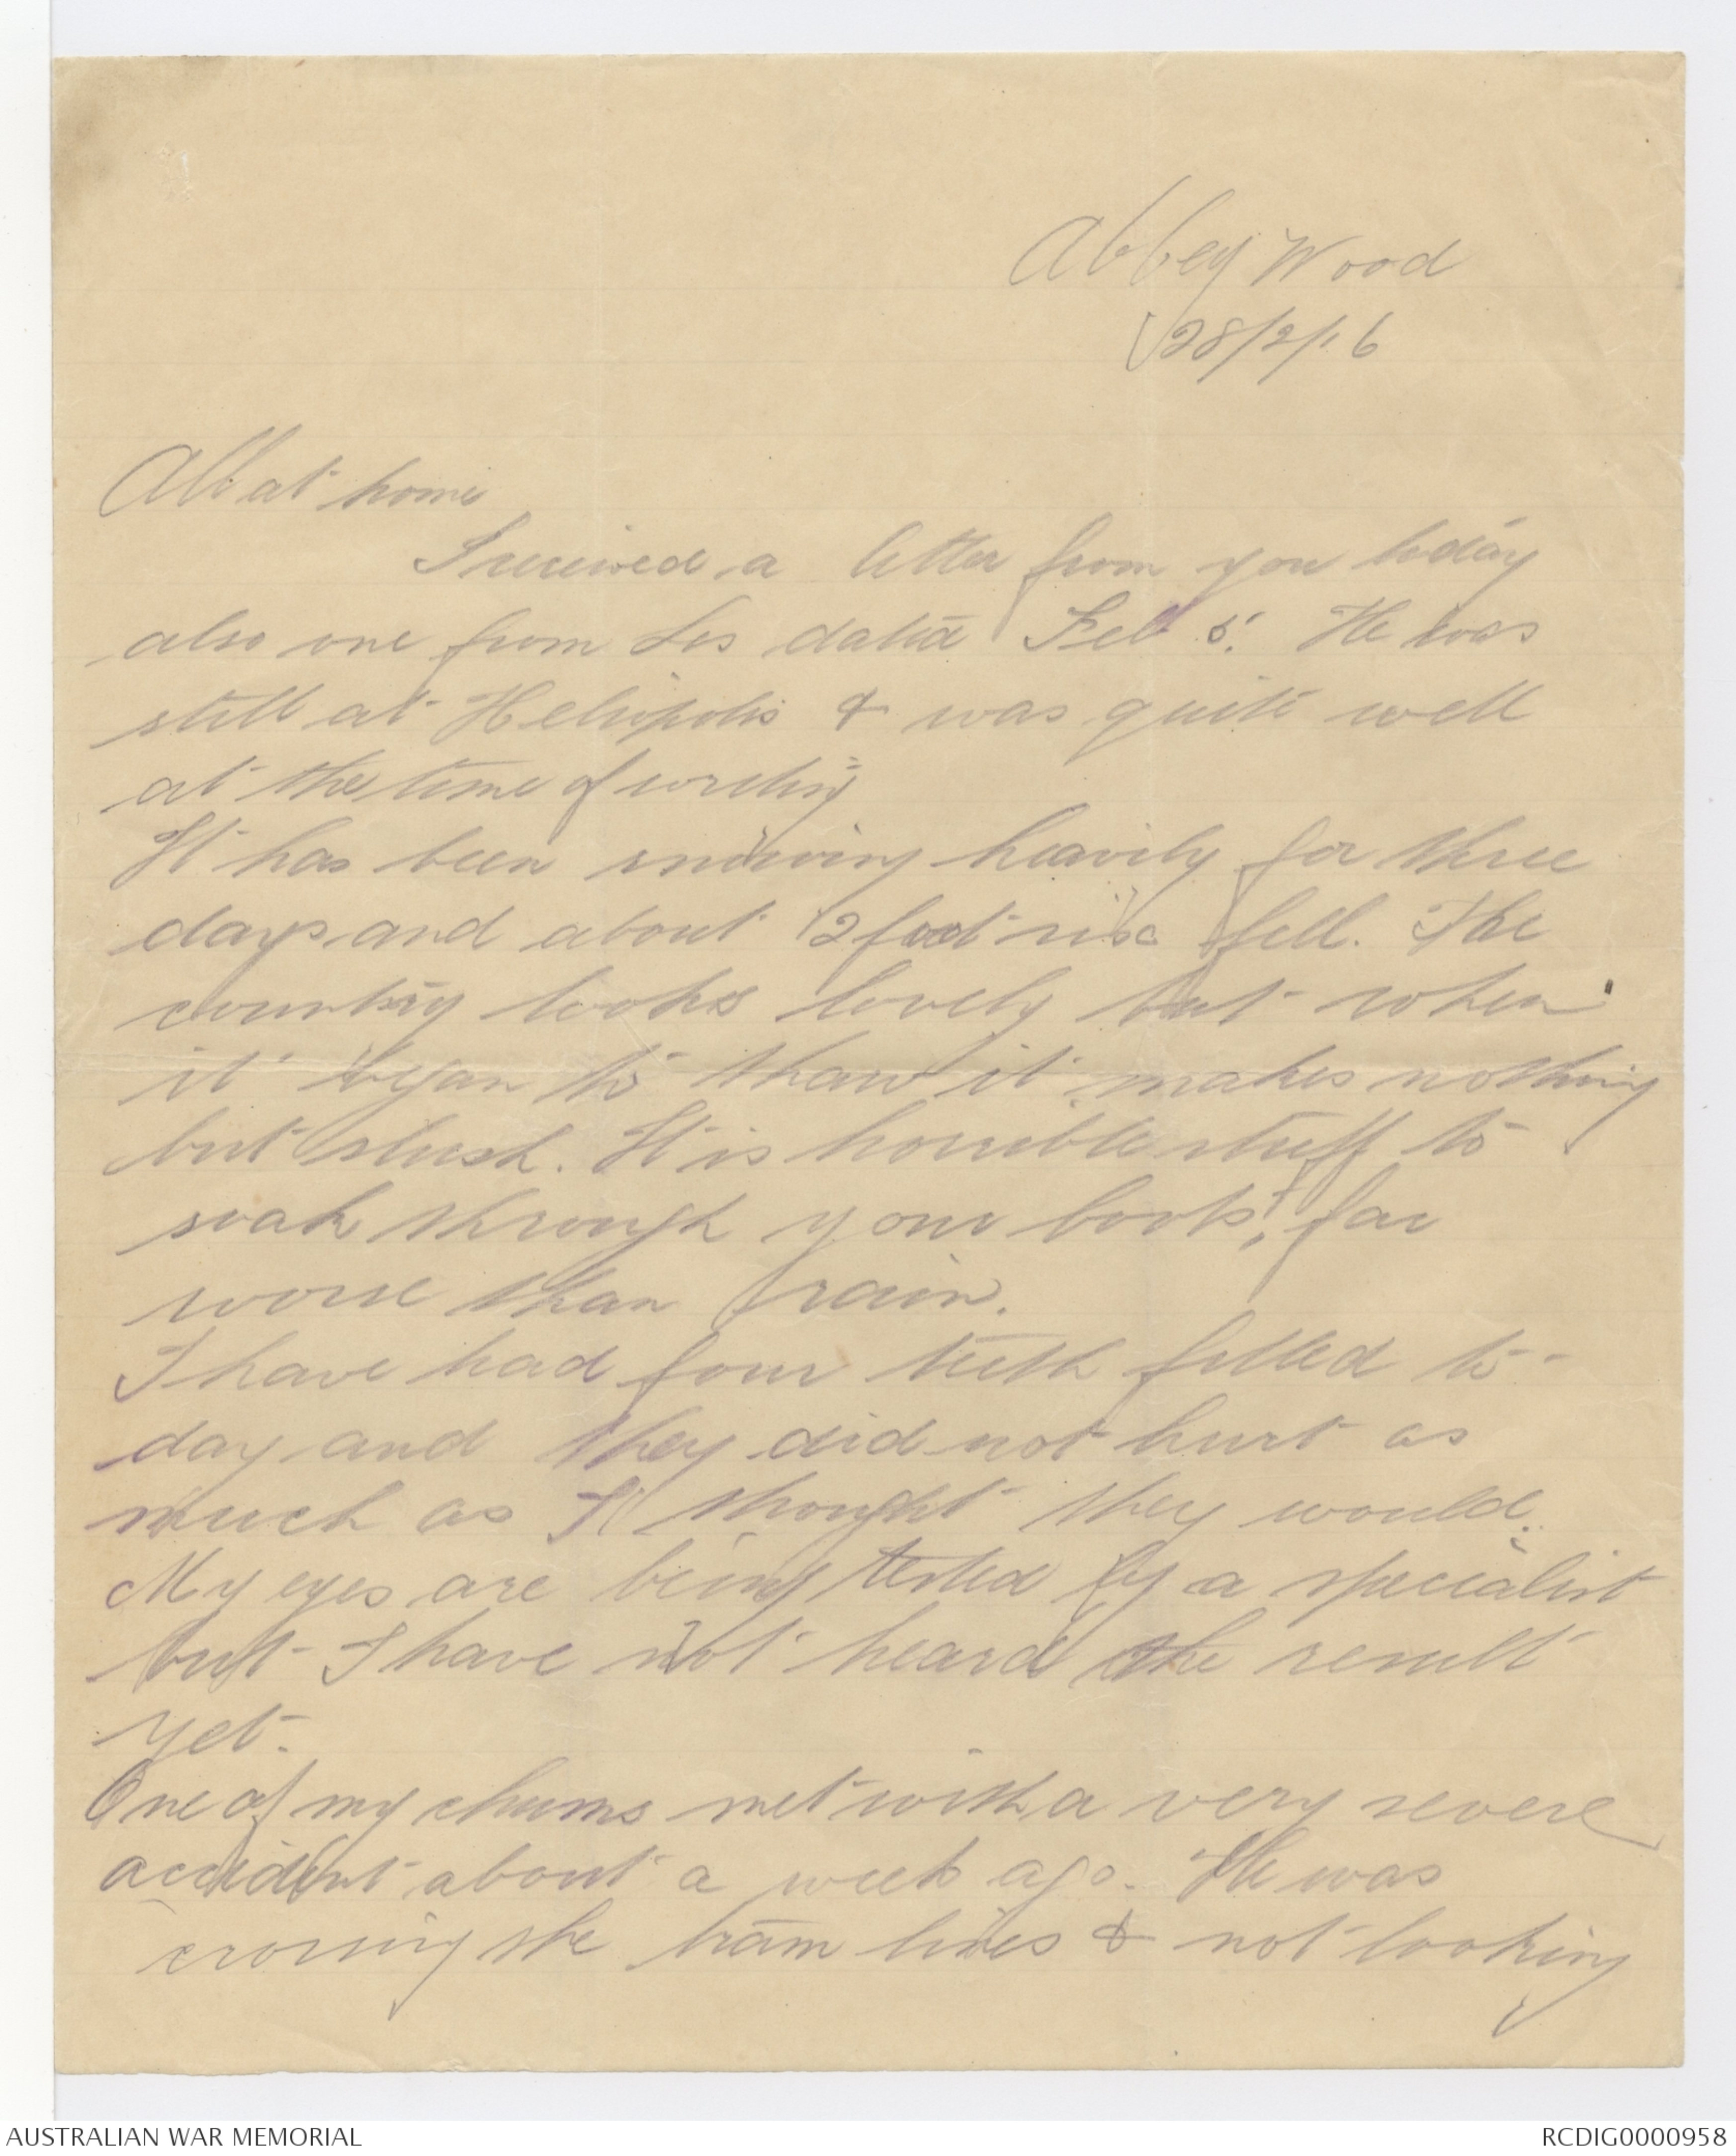 Abbey Wood
28/2/16
All at home
I received a letter from you today
also one from Les dated Feb 5. He was
still at Heliopolis & was quite well
at the time of writing
It has been snowing heavily for three
days and about 2 foot six fell. The
country looks lovely but when
it began to thaw it makes nothing
but slush. It is horrible stuff to
soak through your boots, far
worse than rain.
I have had four teeth filled to-
day and they did not hurt as
much as I thought they would.
My eyes are being tested by a specialist
but I have not heard the result
yet.
One of my chums met with a very severe
accident about a week ago. He was
crossing the tram lines & not looking
AUSTRALIAN WAR MEMORIAL
RCDIG0000958